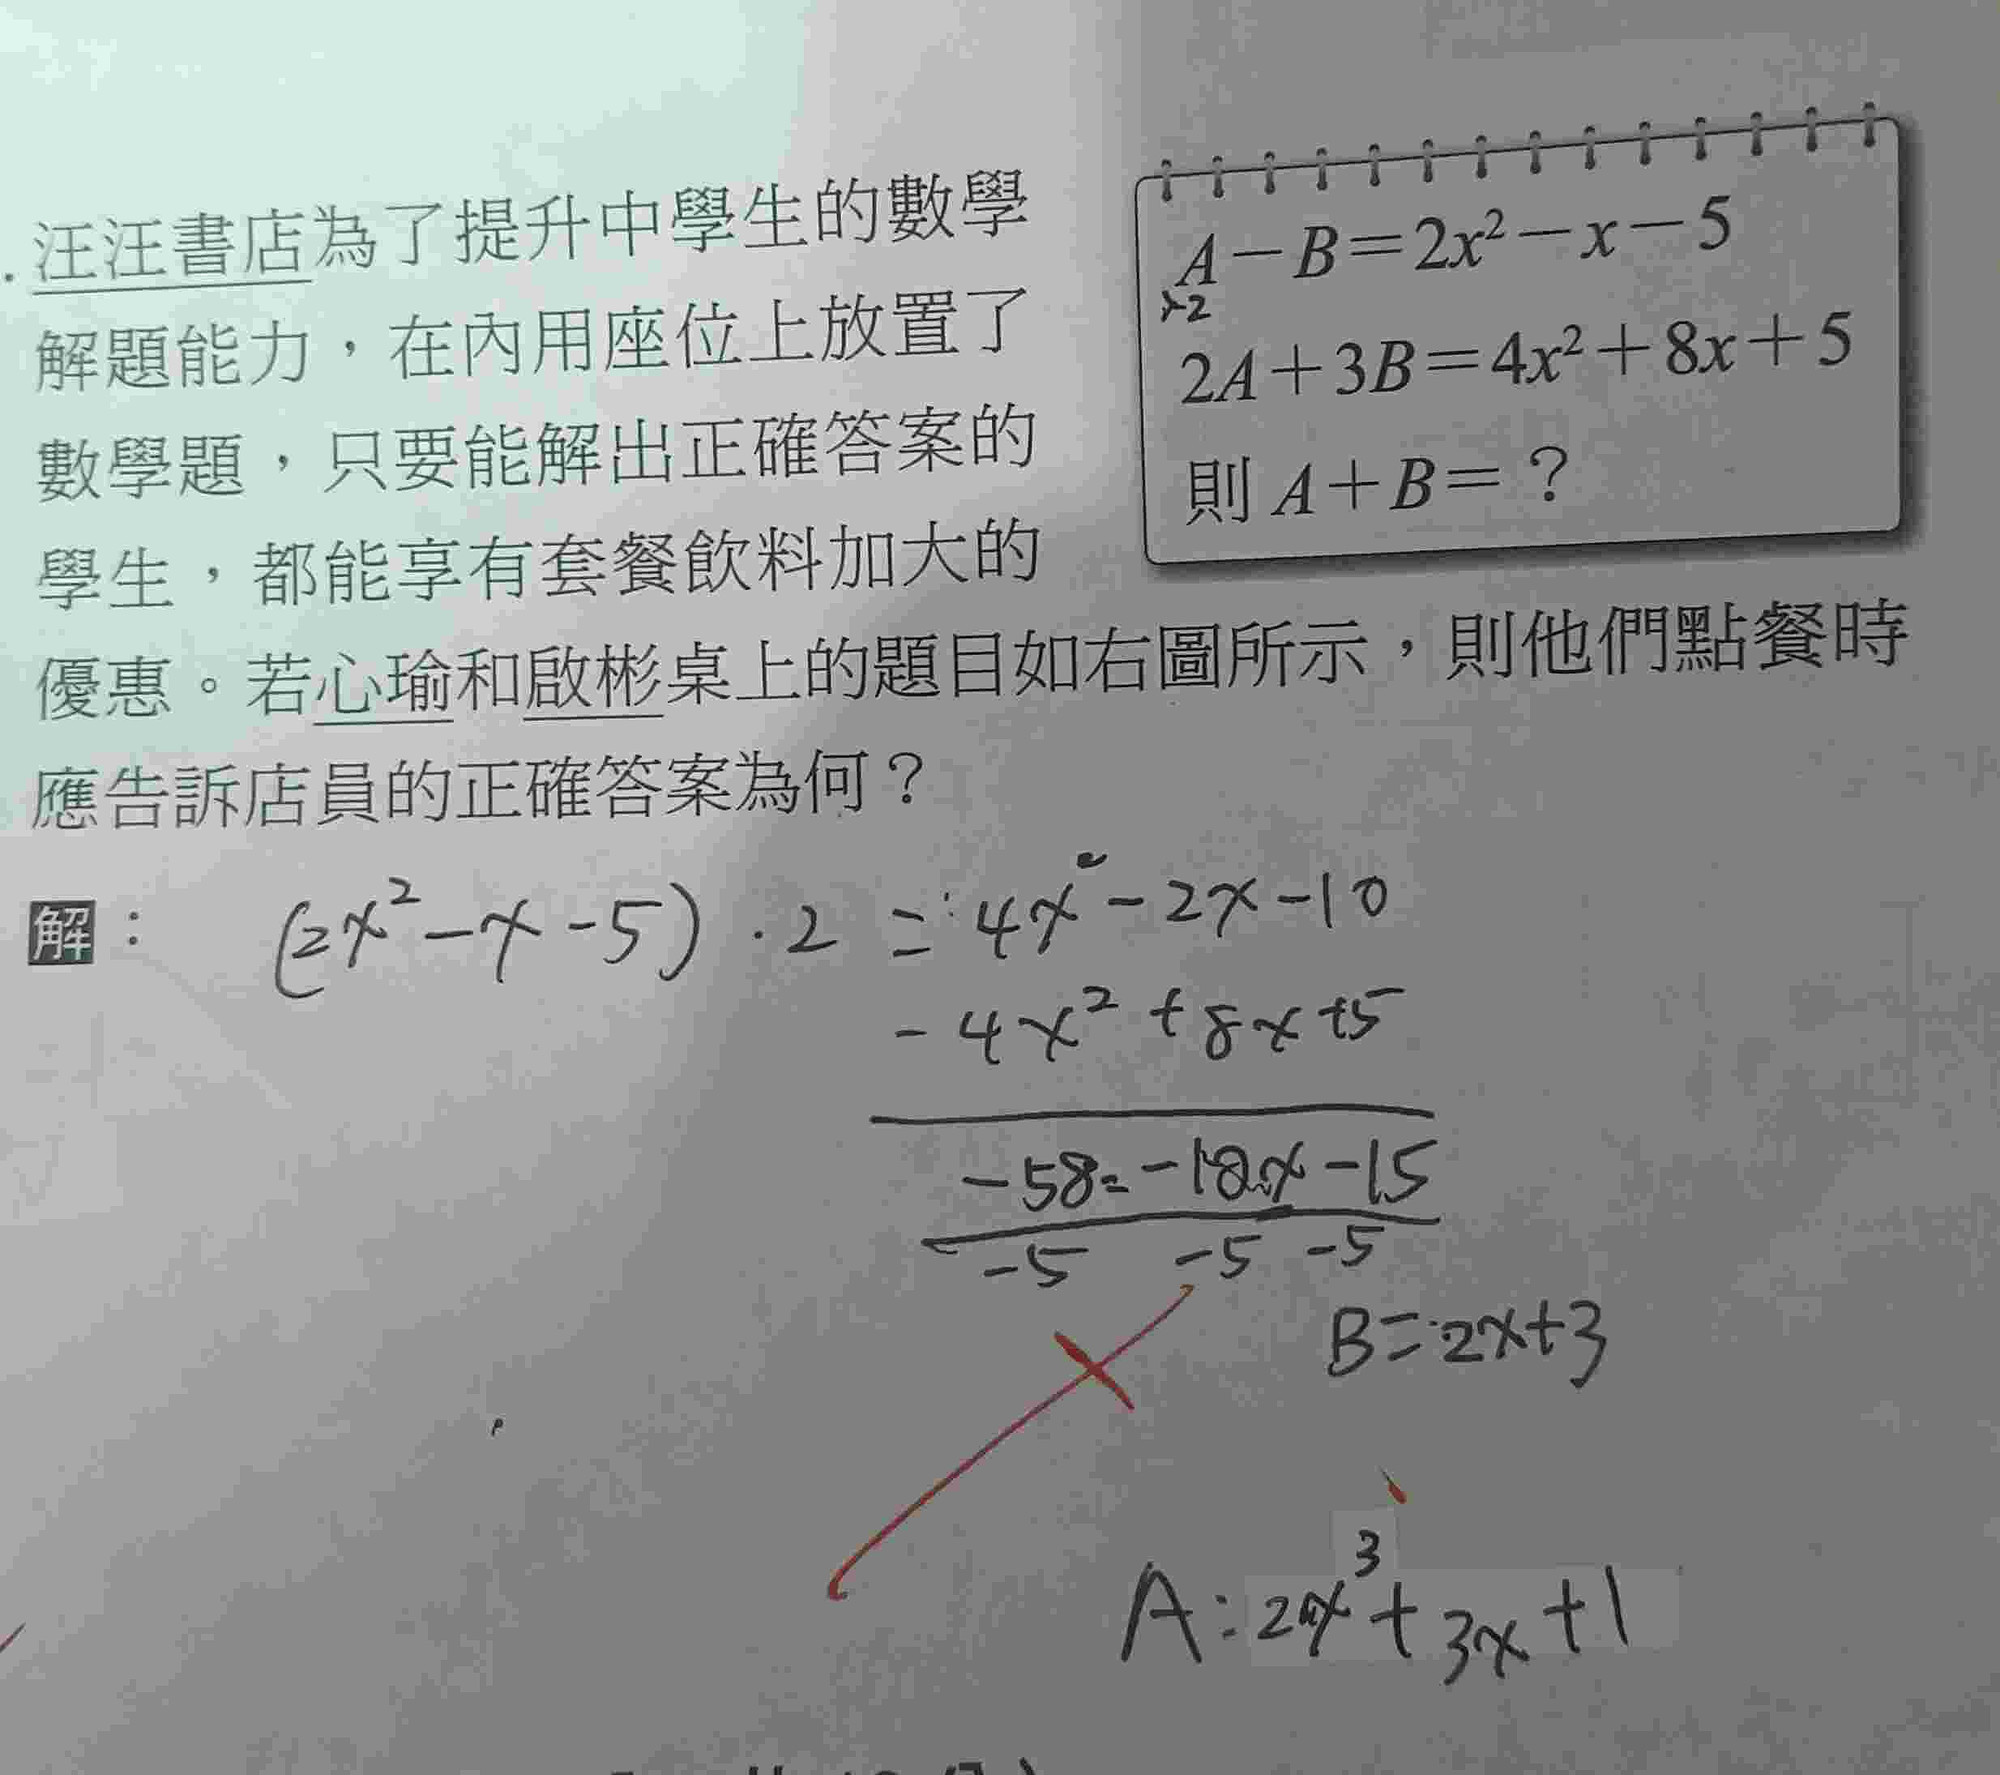 .汪汪書店為了提升中學生的數學
解題能力，在內用座位上放置了
數學題，只要能解出正確答案的
學生，都能享有套餐飲料加大的
優惠。若心瑜和啟彬桌上的題目如右圖所示，則他們點餐時
應告訴店員的正確答案為何？
A－B＝2x²－x－5
×2
2A＋3B＝4x²＋8x＋5
則 A＋B＝？
解：
(2x²-x-5)·2 = 4x²-2x-10
-4x²+8x+5
-5B=-10x-15
-5 -5 -5
B=2x+3
A:2x³+3x+1